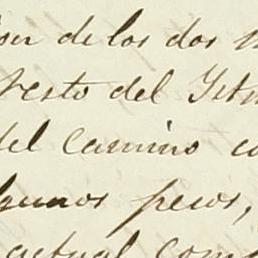 de los dos
resto del Istm
del camino co
algunos pesos,
actual com